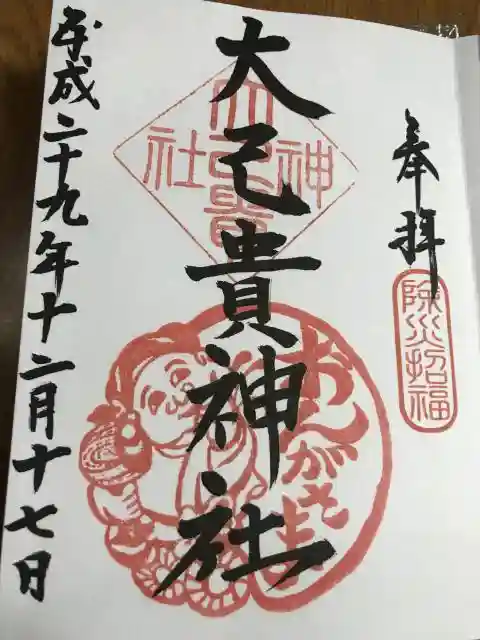 奉拝
除災招福
大己貴神社
大己貴
神
社
おんがさま
平成二十九年十二月十七日